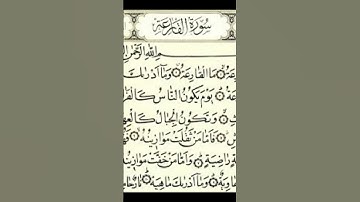 سُورَةُ الْقَارِعَةِ
مِ اللّٰهِ الرَّحْمٰنِ
عَةُ ۝ مَا الْقَارِعَةُ ۝ وَمَٓا اَدْرٰيكَ
عَةُ ۝ يَوْمَ يَكُونُ النَّاسُ كَالْفَرَ
۝ وَتَكُونُ الْجِبَالُ كَالْعِهْ
۝ فَاَمَّا مَنْ ثَقُلَتْ مَوَازِينُهُ ۝ فَهُوَ
ةٍ رَاضِيَةٍ ۝ وَاَمَّا مَنْ خَفَّتْ مَوَازِ
اوِيَةٌ ۝ وَمَٓا اَدْرٰيكَ مَاهِيَهْ ۝ نَارٌ حَامِ